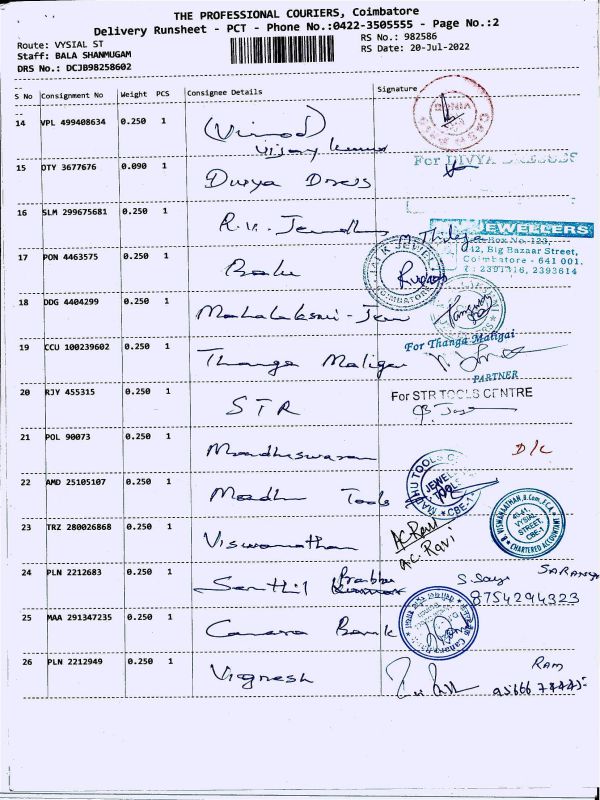 THE PROFESSIONAL COURIERS, Coimbatore
Delivery Runsheet - PCT - Phone No.:0422-3505555 - Page No.:2
Route: VYSIAL ST
RS No.: 982586
Staff: BALA SHANMUGAM
RS Date: 20-Jul-2022
DRS No.: DCJB98258602
S No Consignment No Weight PCS Consignee Details Signature
14 VPL 499408634 0.250 1 (Vinod)
Vijay Kumar
15 OTY 3677676 0.090 1 Divya Dress
For DIVYA DRESSES
16 SLM 299675681 0.250 1 R.K. Jewellers
JEWELLERS
Box No-123,
42, Big Bazaar Street,
Coimbatore - 641 001.
17 PON 4463575 0.250 1 Balu
COIMBATORE
18 DDG 4404299 0.250 1 Mahalakshmi-Jew
19 CCU 100239602 0.250 1 Thanga Maligai
For Thanga Maligai
PARTNER
20 RJY 455315 0.250 1 STR
For STR TOOLS CENTRE
21 POL 90073 0.250 1 Madheswaran D/C
22 AMD 25105107 0.250 1 Madhu Tools
MADHU TOOLS
JEWELL
TOOLS
CBE-1
23 TRZ 280026868 0.250 1 Viswanathan
AC Ravi
A.C. Ravi
R. VISWANATHAN, B.Com., F.C.A.
40-41,
VYSIAL
STREET,
CBE-1
CHARTERED ACCOUNTANT
24 PLN 2212683 0.250 1 Senthil Prabhu
8754294323
25 MAA 291347235 0.250 1 Canara Bank
26 PLN 2212949 0.250 1 Vignesh
RAM